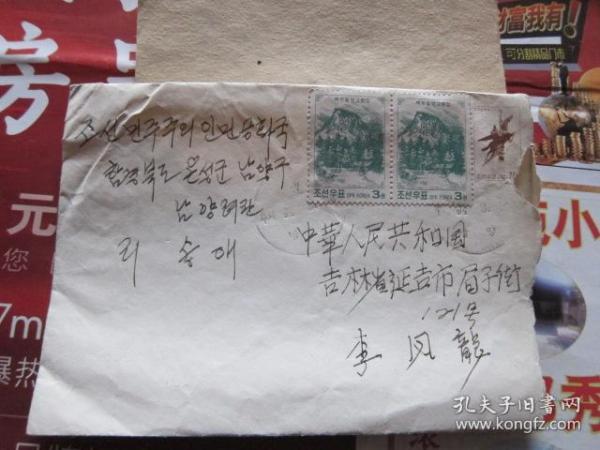 조선민주주의인민공화국
함경북도 온성군 남양구
남양려관
리송애
조선우표
DPR KOREA
3원
조선우표
DPR KOREA
3원
中華人民共和国
吉林省延吉市局子街
121号
李凤龍
房
元
您
7m
爆热
财富我有!
可分割精品门市
小
秀
孔夫子旧书网
www.kongfz.com